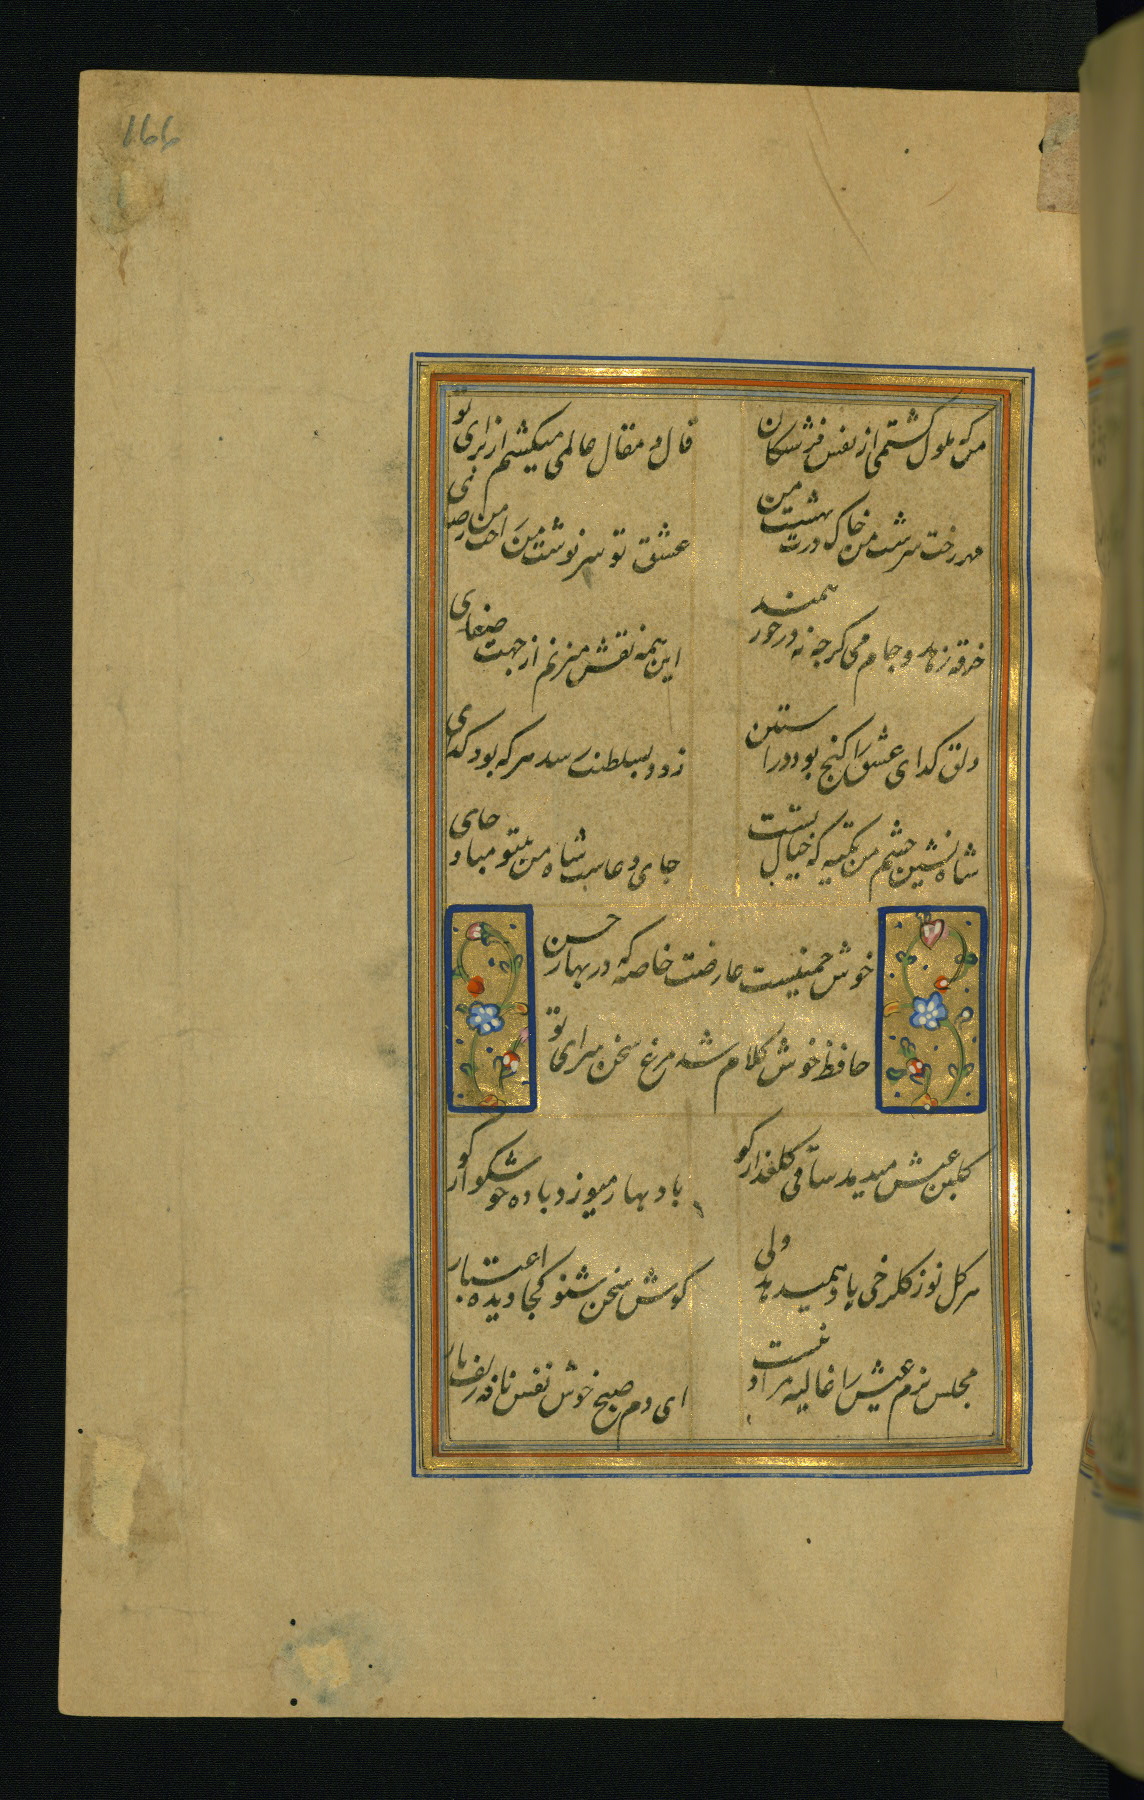 166
من که ملول گشتمی از نفس فرشتکان
قال و مقال عالمی میکشم از برای تو
مهر رخت سرشت من خاک درت بهشت من
عشق تو سرنوشت من راحت من رضی
خرقه زهد و جام می گرچه نه درخور همند
این همه نقش میزنم از جهت رضای
دلق کدای عشق را کنج بود در استین
زود بسلطنت رسد هر که بود کدای
شاه نشین چشم من تکیه که خیال تست
جای دعاست شاه من بیتو مباد جای
خوش چمنیست عارضت خاصه که در بهار حسن
حافظ خوش کلام شد مرغ سخن سرای تو
کلبن عیش میدمد ساقی کلعذار کو
باد بهار میوزد باده خوشکوار کو
هر کل نو ز کلرخی یاد همیدهد ولی
کوش سخن شنو کجا دیده اعتبار
مجلس بزم عیش را غالیه مراد نیست
ای دم صبح خوش نفس نافه زلف یار